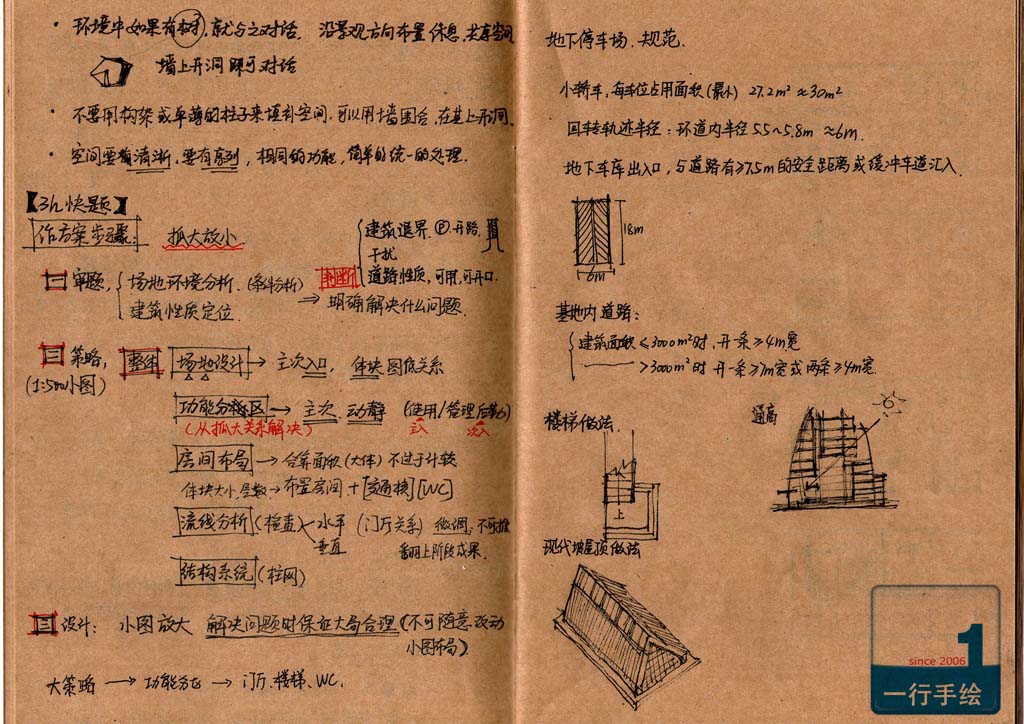 · 环境中如果有树,就与之对话. 沿景观方向布置休息,共享空间
墙上开洞即可对话
· 不要用构架或单薄的柱子来填补空间,可以用墙围合,在其上开洞.
· 空间要清晰,要有序列,相同的功能,简单的统一的处理.
【3h快题】
作方案步骤: 抓大放小
一 审题, 场地环境分析.(条件分析)
建筑性质定位.
判断 建筑退界.Ⓟ.开路.
干扰
道路性质,可用,可开口.
⇒ 明确解决什么问题.
二 策略, 整体 场地设计→主次入口, 体块图底关系
(1:500小图)
功能分区→主次.动静 (使用/管理后勤)
(从抓大关系解决) 主入 次入
房间布局→合算面积(大体)不过于计较
体块大小,层数→布置房间.+[交通核][WC]
流线分析(检查) 水平 (门厅关系) 微调:不可推
垂直 翻上阶段成果.
结构系统(柱网)
三 设计: 小图放大 解决问题时保证大局合理(不可随意改动
小图布局)
大策略→功能分区→门厅.楼梯.WC.
地下停车场.规范.
小轿车,每车位占用面积(最小) 27.2m²≈30m²
回转轨迹半径:环道内半径5.5~5.8m ≈6m.
地下车库出入口,与道路有≥7.5m的安全距离或缓冲车道汇入.
18m
6m
基地内道路:
建筑面积≤3000m²时,开一条≥4m宽
>3000m²时 开一条≥7m宽或两条≥4m宽.
楼梯做法.
上
通高
现代坡屋顶做法
1
since 2006
一行手绘